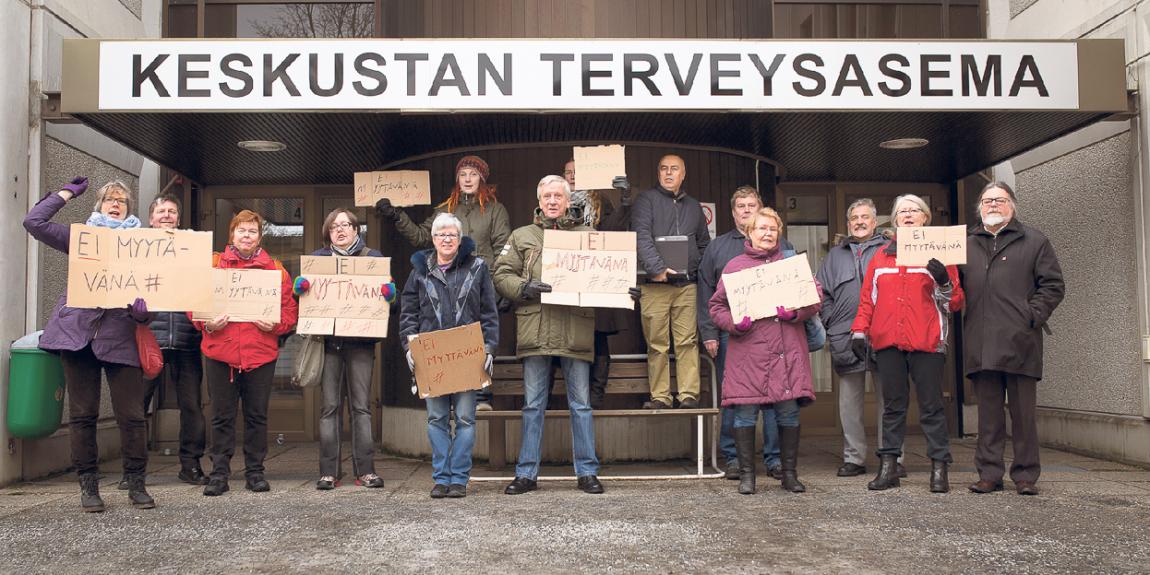 KESKUSTAN TERVEYSASEMA
4
3
EI MYYTÄ-
VÄNÄ #
EI
MYYTÄVÄNÄ
#
# EI #
MYYTÄVÄNÄ
# #
# #
EI
MYYTÄVÄNÄ
#
EI
MYYTÄVÄNÄ
#
EI
MYYTÄVÄNÄ
# #
# #
EI
MYYTÄVÄNÄ
EI
MYYTÄVÄNÄ
#
EI
MYYTÄVÄNÄ